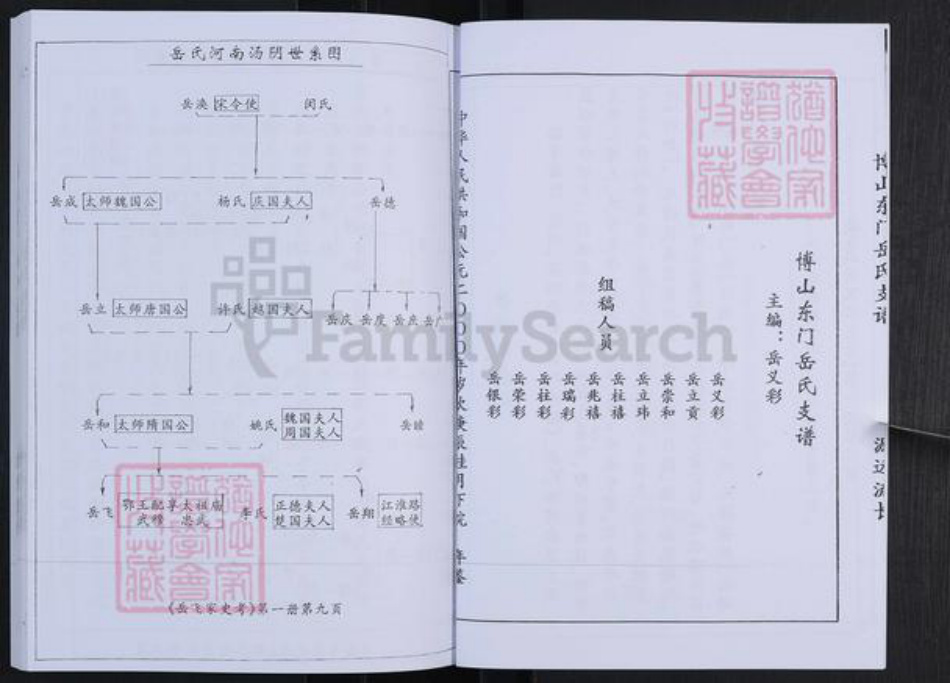 岳氏河南汤阴世系图
岳涣 宋令使 闵氏
岳成 太师魏国公 杨氏 庆国夫人 岳德
岳立 太师唐国公 许氏 越国夫人 岳庆 岳度 岳庶 岳广
岳和 太师隋国公 姚氏 魏国夫人 周国夫人 岳睦
岳飞 鄂王配享太祖庙 武穆 忠武 李氏 正德夫人 楚国夫人 岳翔 江淮路 经略使
《岳飞家史考》第一册第九页
博山东门岳氏支谱
源远流长
博山东门岳氏支谱
主编：岳义彩
组稿人员
岳义彩
岳立贡
岳崇和
岳立玮
岳柱禧
岳兆禧
岳瑞彩
岳柱彩
岳荣彩
岳银彩
中华人民共和国公元二〇〇〇年岁次庚辰桂月下浣
FamilySearch